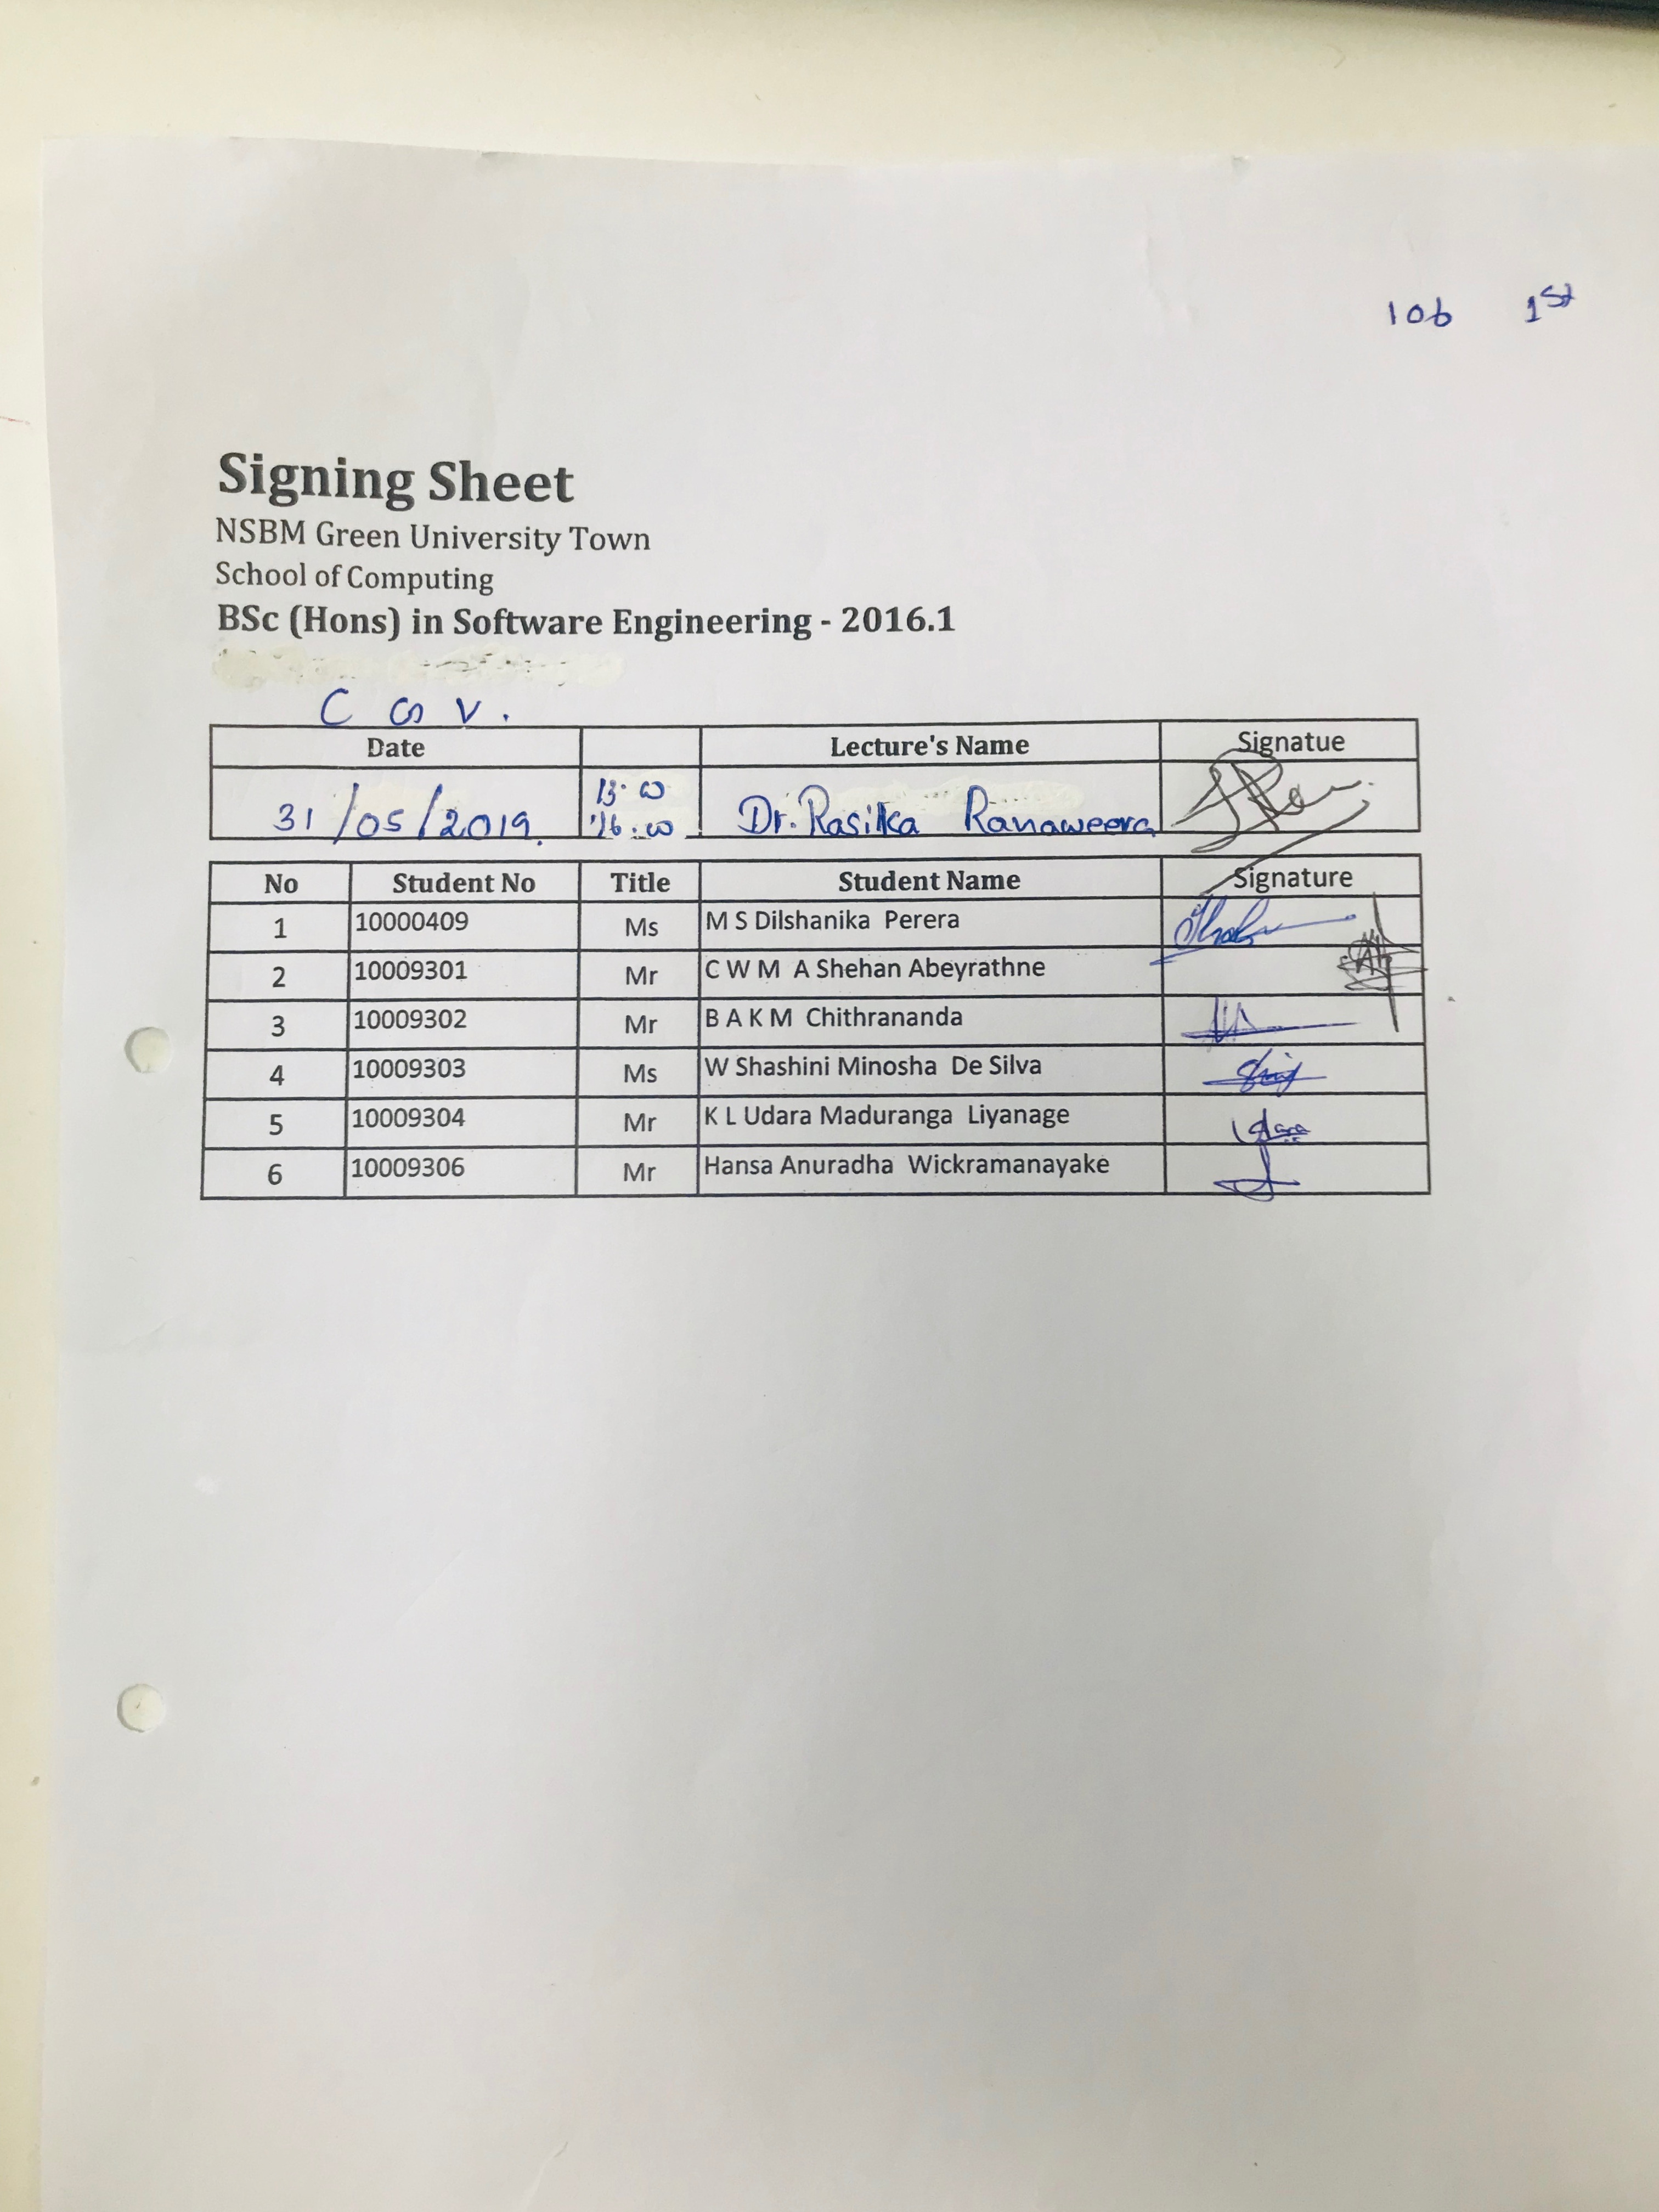 106 1st
Signing Sheet
NSBM Green University Town
School of Computing
BSc (Hons) in Software Engineering - 2016.1
C G V .
Date Lecture's Name Signatue
31/05/2019. 13.00 16.00 Dr. Rasika Ranaweera
No Student No Title Student Name Signature
1 10000409 Ms M S Dilshanika Perera
2 10009301 Mr C W M A Shehan Abeyrathne
3 10009302 Mr B A K M Chithrananda
4 10009303 Ms W Shashini Minosha De Silva
5 10009304 Mr K L Udara Maduranga Liyanage
6 10009306 Mr Hansa Anuradha Wickramanayake